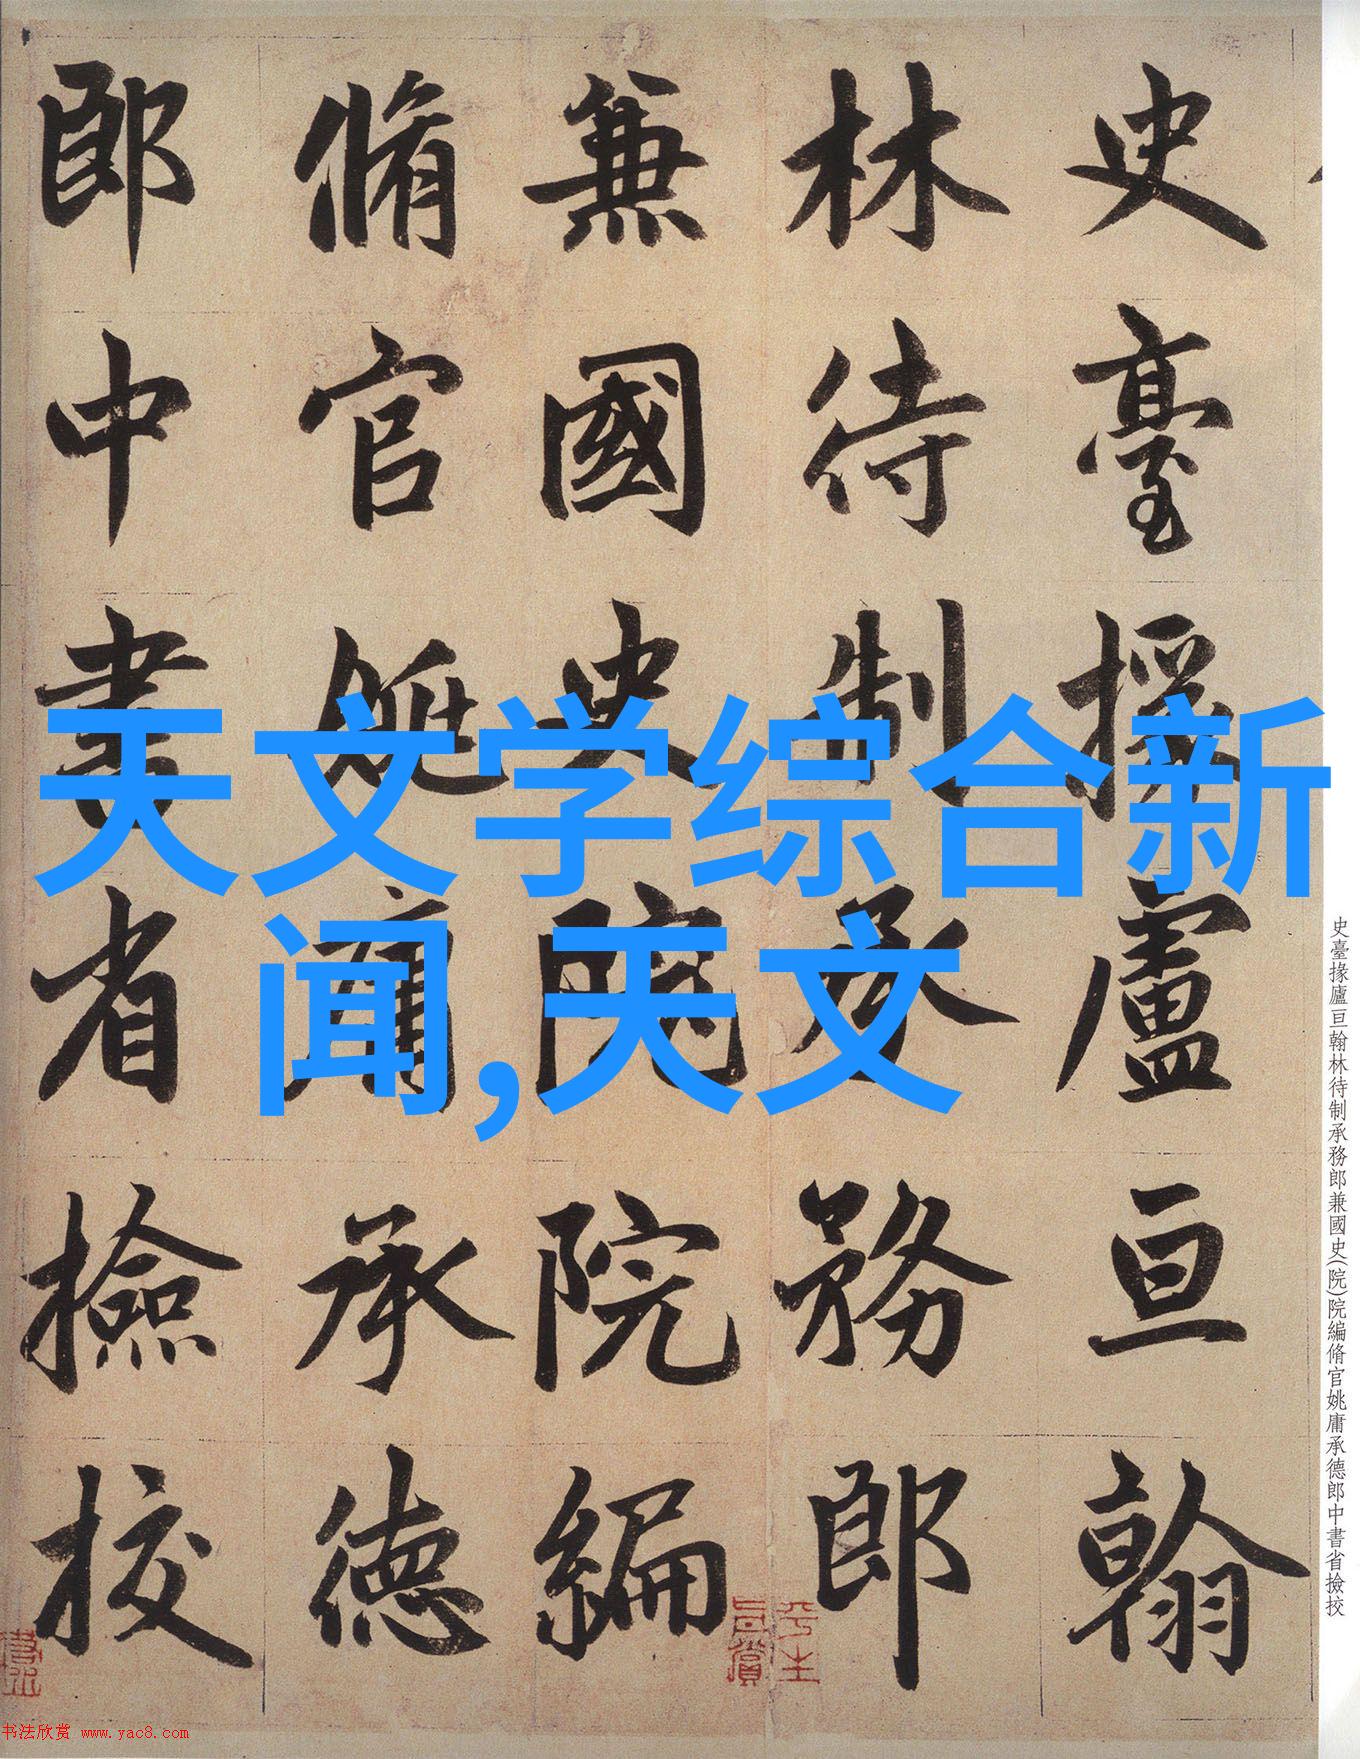 史臺掾盧亘翰
林待制承務郎
兼國史院院編
脩官姚庸承德
郎中書省撿挍
天文学综合新
闻,天文
史臺掾廬亘翰林待制承務郎兼國史(院)院編脩官姚庸承德郎中書省撿挍
书法欣赏 www.yac8.com